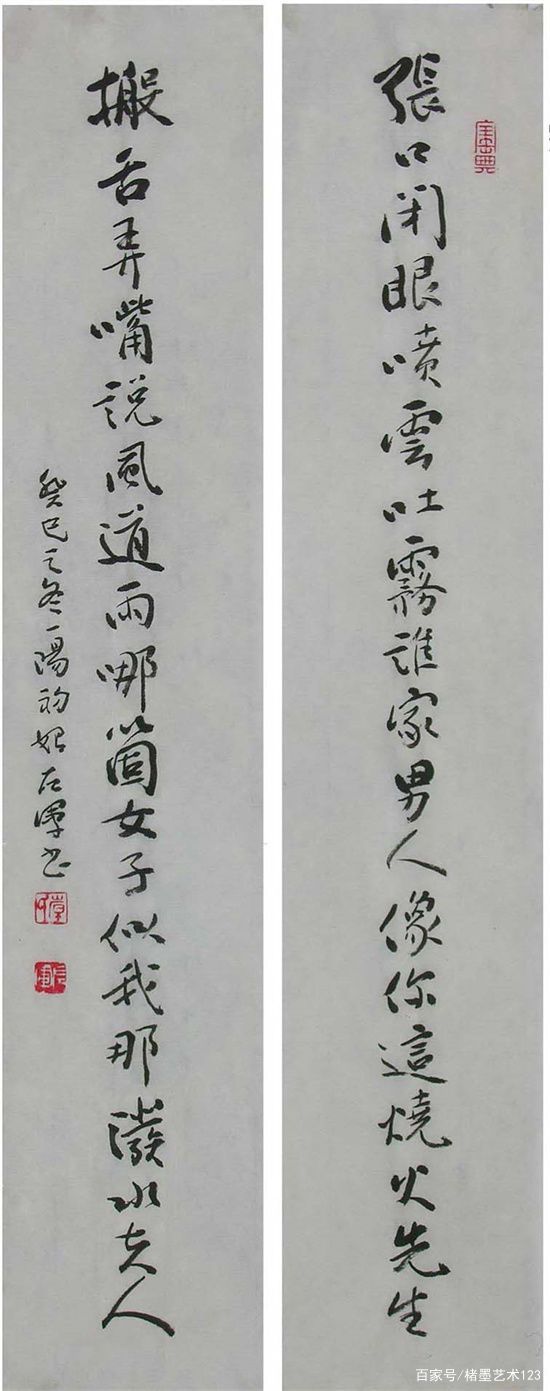 張口閉眼噴雲吐霧誰家男人像你這燒火先生
搬舌弄嘴説風道雨哪箇女子似我那潑水夫人
癸巳之冬一陽初始左書
百家号/楮墨艺术123